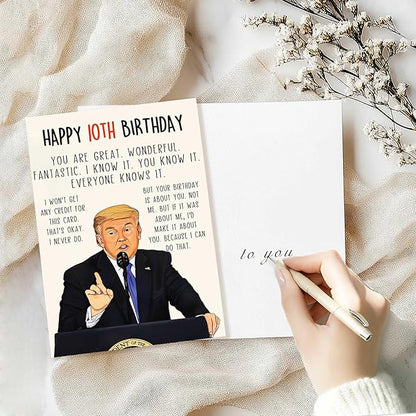 HAPPY 10TH BIRTHDAY
YOU ARE GREAT. WONDERFUL.
FANTASTIC. I KNOW IT. YOU KNOW IT.
EVERYONE KNOWS IT.
I WON'T GET
ANY CREDIT FOR
THIS CARD.
THAT'S OKAY.
I NEVER DO.
BUT YOUR BIRTHDAY
IS ABOUT YOU. NOT
ME. BUT IF IT WAS
ABOUT ME, I'D
MAKE IT ABOUT
YOU. BECAUSE I CAN
DO THAT.
to you